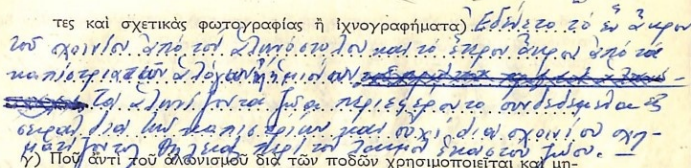 τες καὶ σχετικὰς φωτογραφίας ἢ ἰχνογραφήματα) Ἐδένετο τὸ ἓν ἄκρον
τοῦ σχοινίου ἀπὸ τὸν ἁλωνόστυλον καὶ τὸ ἕτερον ἄκρον ἀπὸ τὰ
καπίστρια τῶν ἀλόγων ἢ ἡμιόνων
Τὰ ἁλωνίζοντα ζῶα περιεφέροντο συνδεδεμένα εἰς
σειρὰν διὰ τῶν καπιστριῶν καὶ οὐχὶ διὰ σχοινίου σχη-
ματίζοντος θηλειὰ περὶ τὸν λαιμὸν ἑκάστου ζώου.
γ) Ποῦ ἀντὶ τοῦ ἁλωνισμοῦ διὰ τῶν ποδῶν χρησιμοποιεῖται καὶ μη-